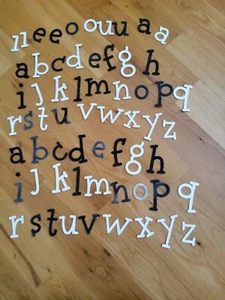 neeoouuaa
abcdefgh
ijklmnopq
rstuvwxyz
abcdefgh
ijklmnopq
rstuvwxyz